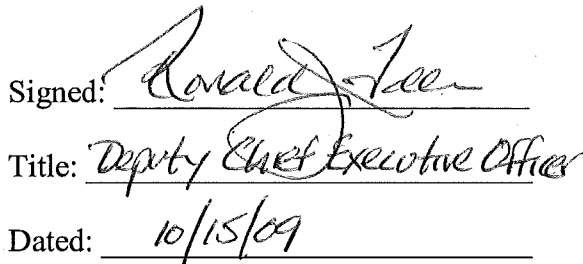 Signed: Ronald J.
Title: Deputy Chief Executive Officer
Dated: 10/15/09